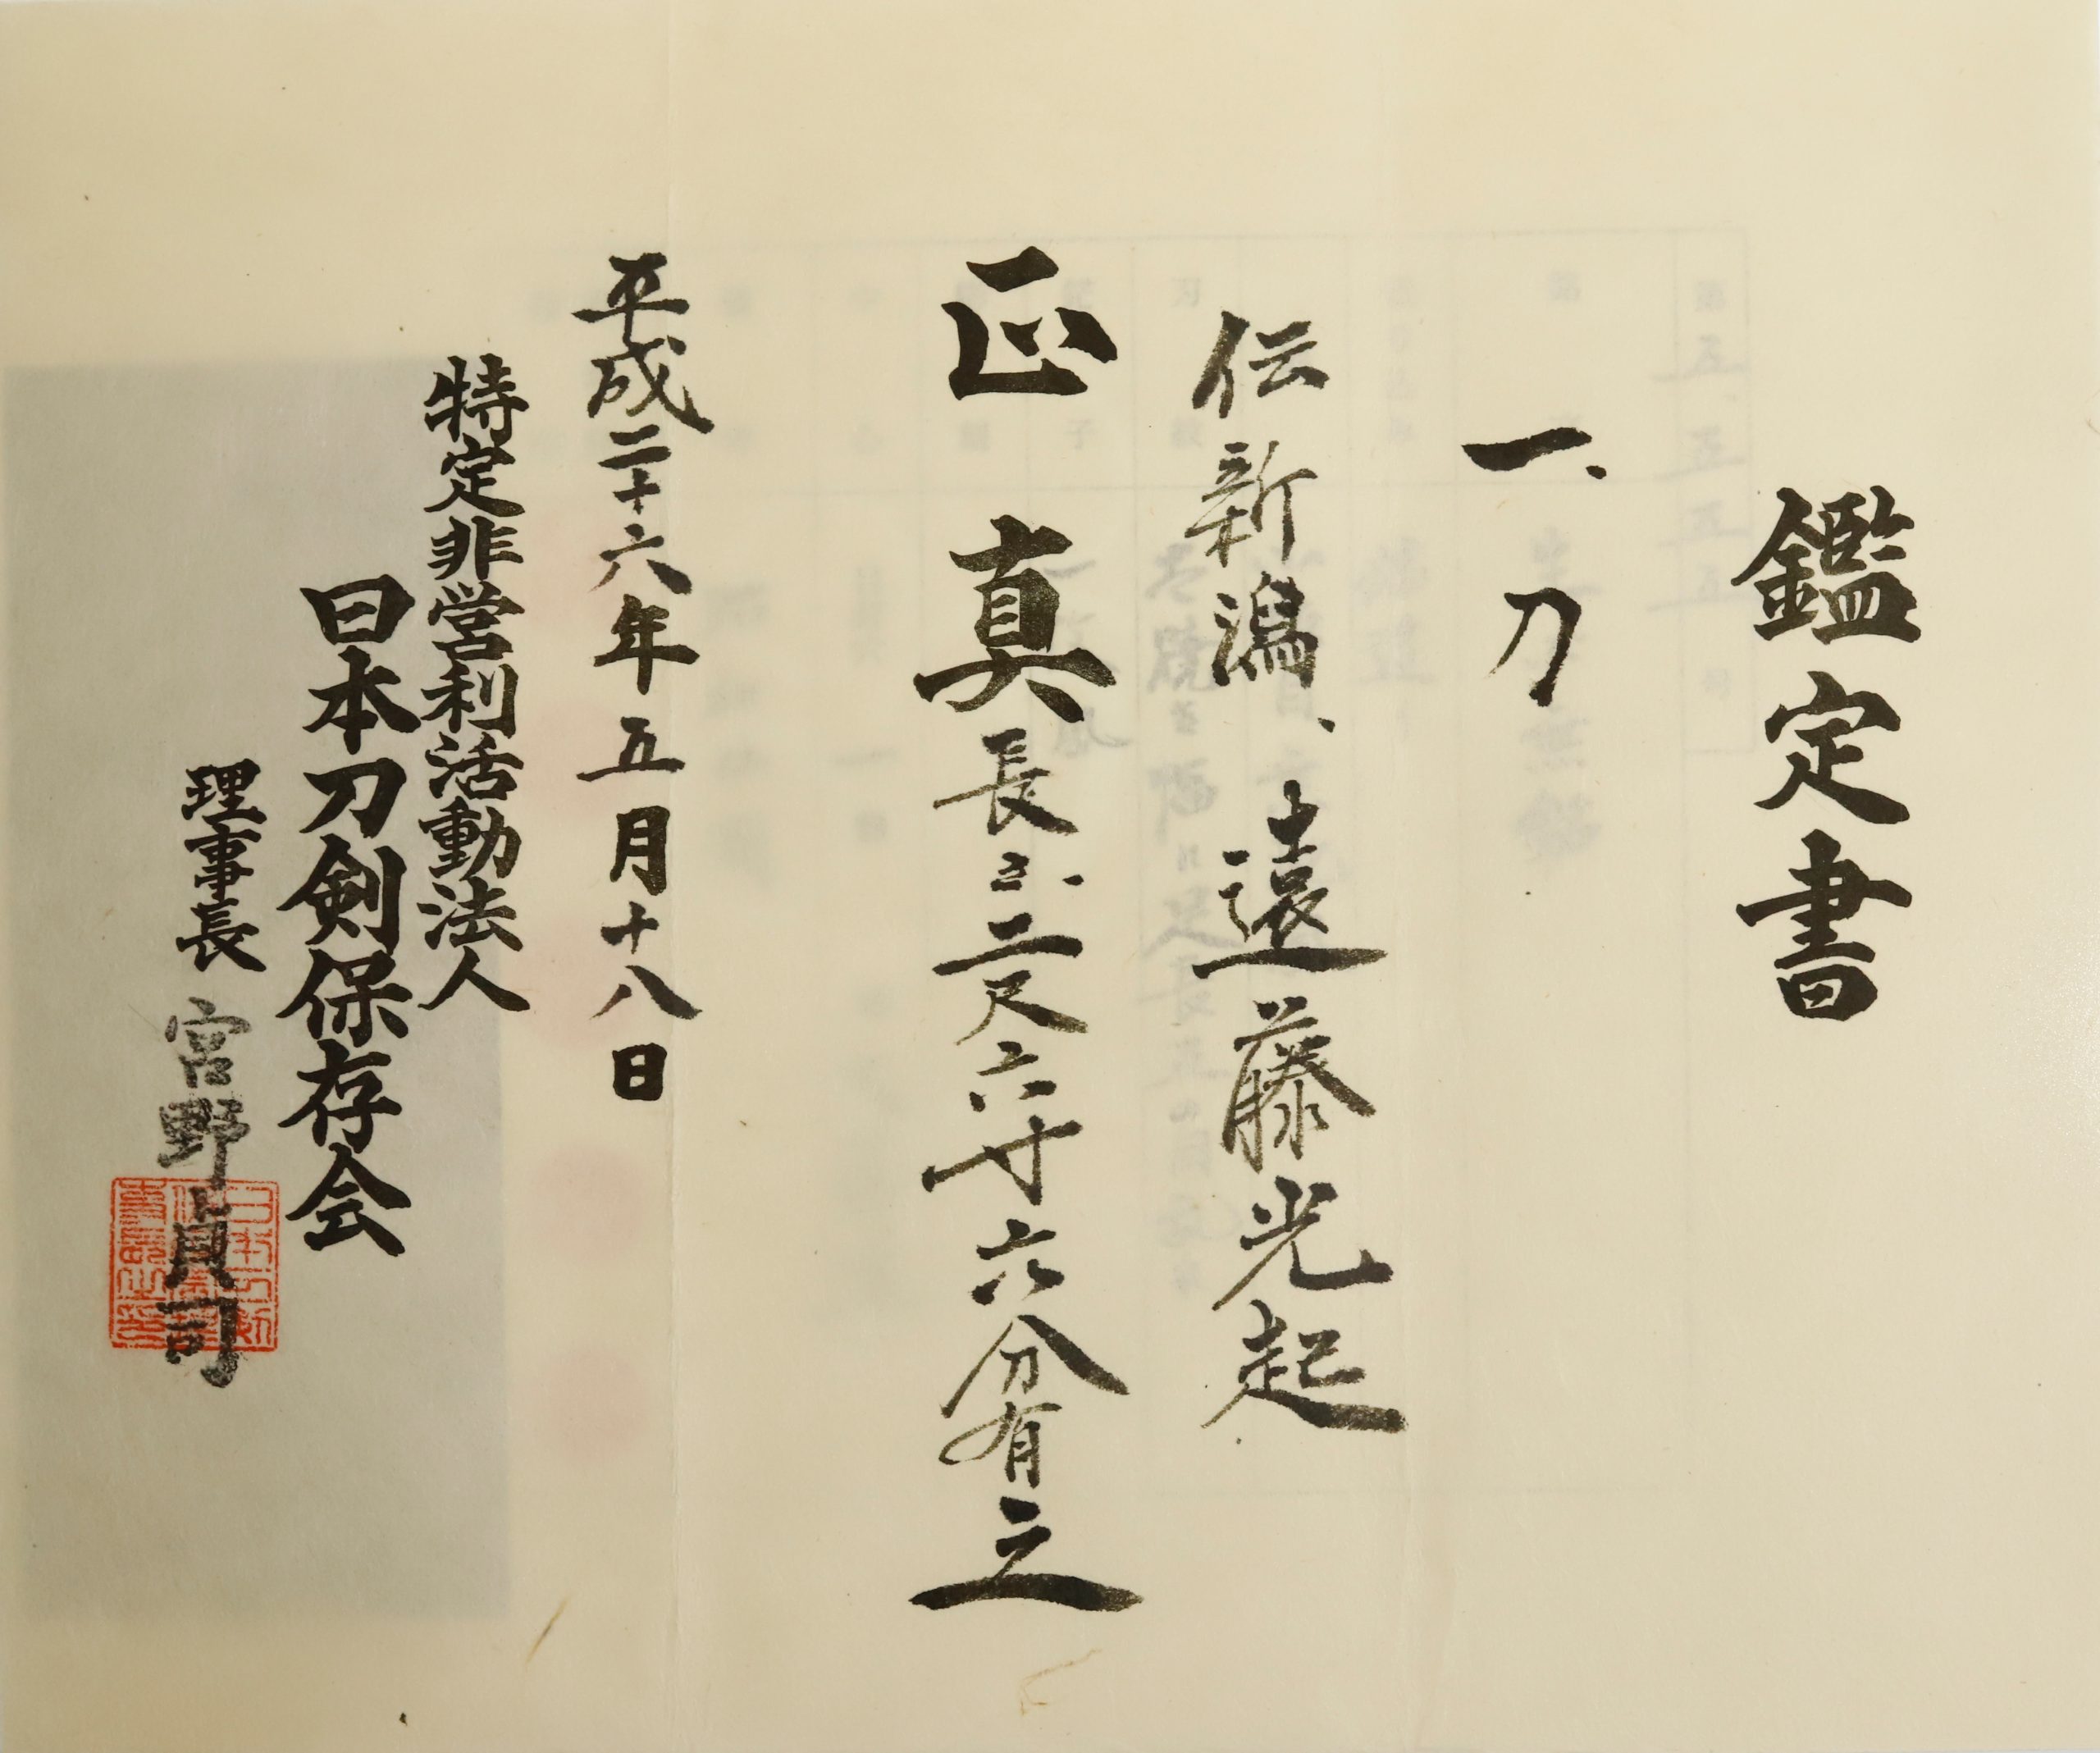 鑑定書
一、刀
伝新潟、遠藤光起
正真長さ、二尺六寸六分有之
平成二十六年五月十八日
特定非営利活動法人
日本刀剣保存会
理事長 宮野貞司